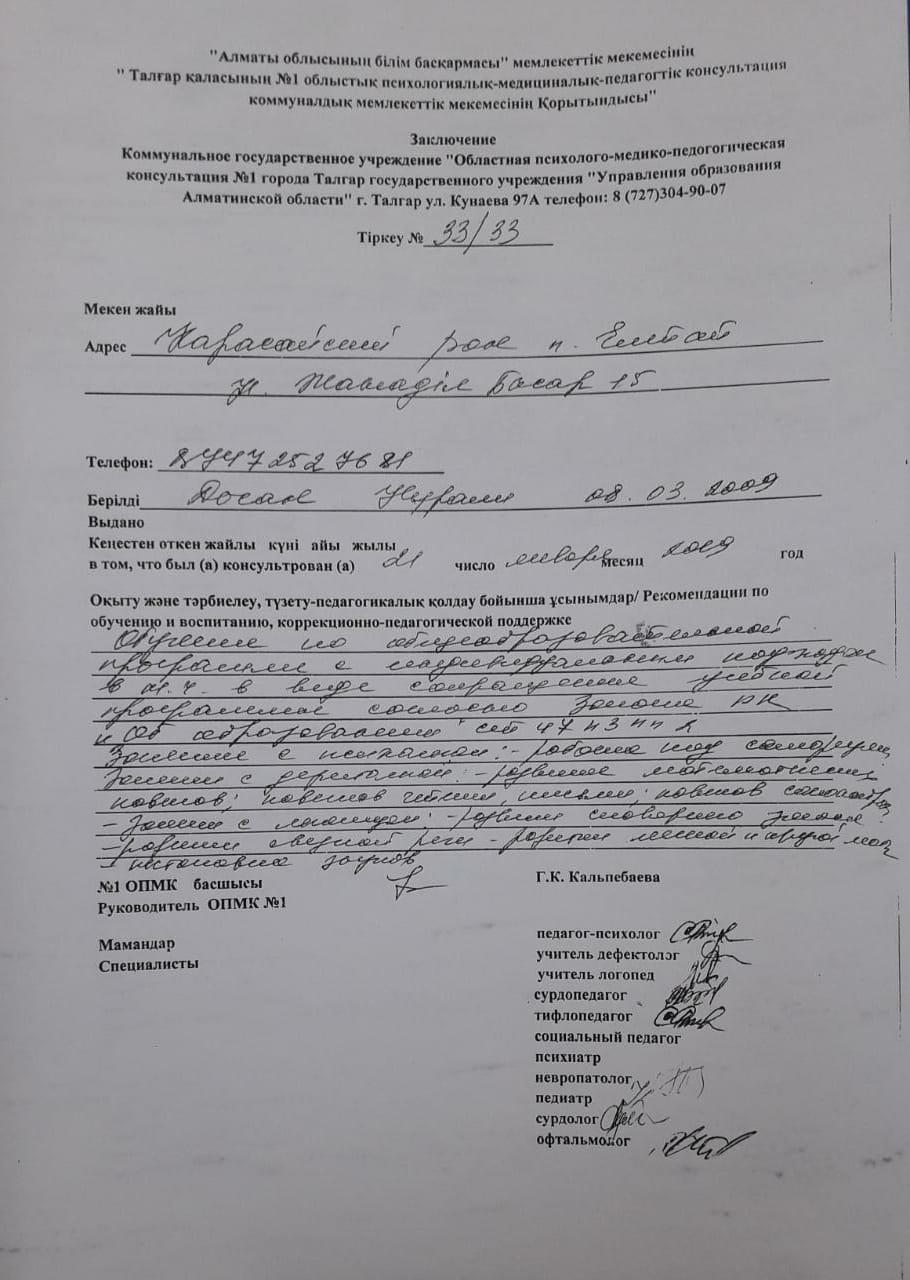 "Алматы облысының білім басқармасы" мемлекеттік мекемесінің
" Талғар қаласының №1 облыстық психологиялық-медициналық-педагогтік консультация
коммуналдық мемлекеттік мекемесінің Қорытындысы"
Заключение
Коммунальное государственное учреждение "Областная психолого-медико-педогогическая
консультация №1 города Талгар государственного учреждения "Управления образования
Алматинской области" г. Талгар ул. Кунаева 97А телефон: 8 (727)304-90-07
Тіркеу № 33/33
Мекен жайы
Адрес Карасайский п.
ул. 15
Телефон: 87472527681
Берілді Досан 08.03.2009
Выдано
Кеңестен өткен жайлы күні айы жылы
в том, что был (а) консультрован (а) 21 число января месяц 2019 год
Оқыту және тәрбиелеу, түзету-педагогикалық қолдау бойынша ұсынымдар/ Рекомендации по
обучению и воспитанию, коррекционно-педагогической поддержке
Обучение по общеобразовательной
программе с индивидуальным подходом
в т.ч. в виде сокращения учебной
программы согласно Закона РК
"Об образовании" ст 47 п 3 пп 2
Занятие с психологом: - работа над
Занятия с дефектологом: - развитие математических
навыков; навыков чтения, письма; навыков
- Занятия с логопедом: - развитие словарного запаса
- развитие связной речи - развитие мелкой и
- постановка звуков
№1 ОПМК басшысы Г.К. Кальпебаева
Руководитель ОПМК №1
Мамандар педагог-психолог
Специалисты учитель дефектолог
учитель логопед
сурдопедагог
тифлопедагог
социальный педагог
психиатр
невропатолог
педиатр
сурдолог
офтальмолог